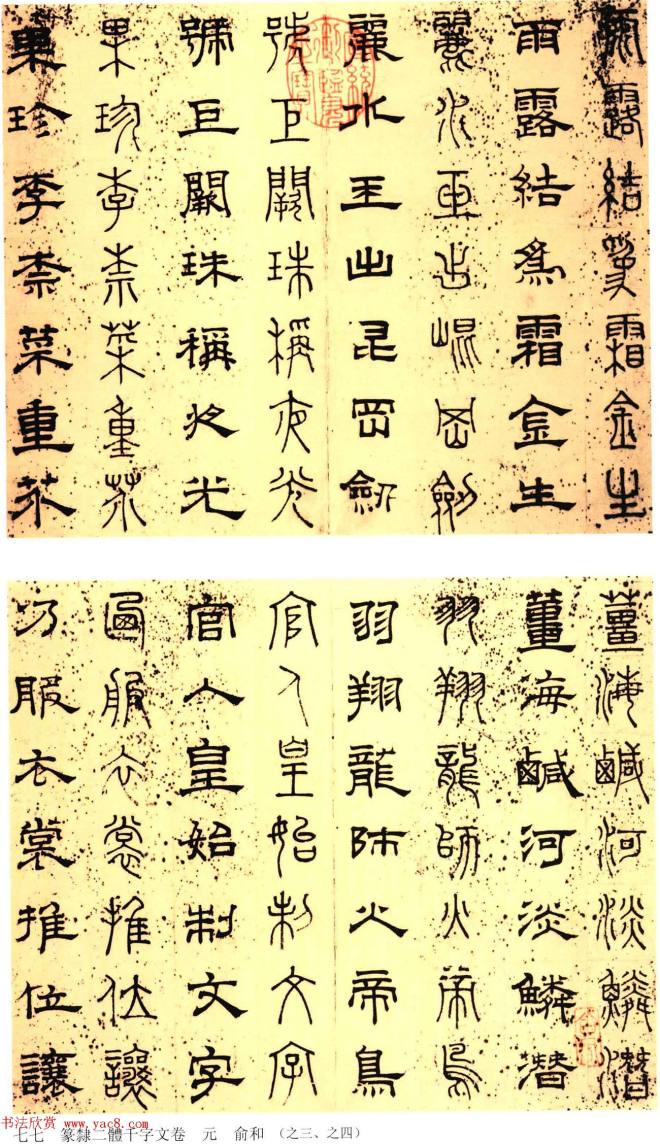 雨露結為霜金生
雨露結為霜金生
麗水玉出崐岡劍
麗水玉出昆岡劍
號巨闕珠稱夜光
號巨闕珠稱夜光
果珍李柰菜重芥
果珍李柰菜重芥
薑海鹹河淡鱗潛
薑海鹹河淡鱗潛
羽翔龍師火帝鳥
羽翔龍師火帝鳥
官人皇始制文字
官人皇始制文字
乃服衣裳推位讓
乃服衣裳推位讓
书法欣赏 www.yac8.com
七七 篆隸二體千字文卷 元 俞和 (之三、之四)